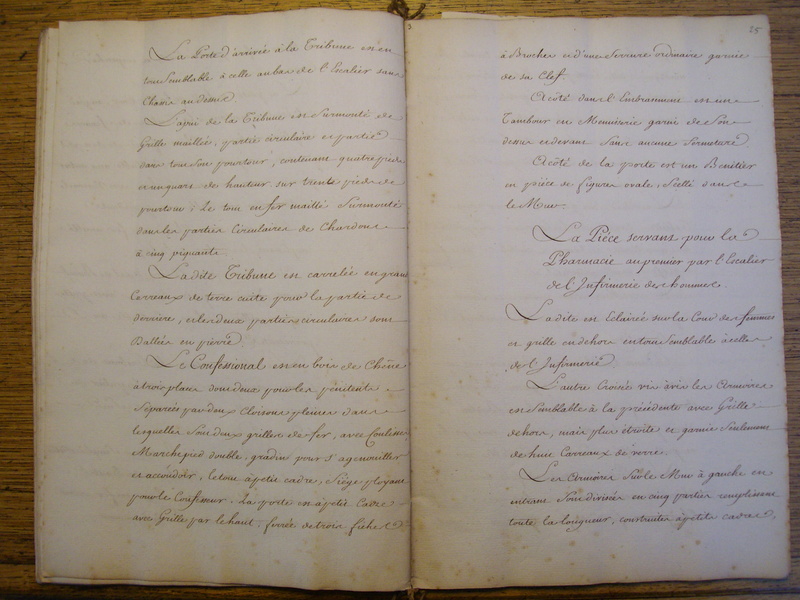 La Porte d'arrivée à la Tribune est en
tout Semblable à celle au bas de l'Escalier sans
Chassis au dessus.
L'apui de la Tribune est Surmonté de
Grille maillée, partie circulaire et partie
dans tout Son pourtour, contenant quatre pieds
et un quart de hauteur sur trente pieds de
pourtour; Le tout en fer maillé Surmonté
dans les parties Circulaires de Chardons
à cinq piquants.
La dite Tribune est carrelée en grand
Carreaux de terre cuite pour la partie de
derriere, et les deux parties circulaires sont
Dallées en pierre
Le Confessional est en bois de Chêne
à trois places dont deux pour les pénitents
Séparées par deux Cloisons pleines dans
lesquelles Sont deux grilles de fer, avec Coulisses
Marchepied double, gradin pour s'agenouiller
et accoudoir, le tout à petit cadre, Siège ployant
pour le Confesseur. La porte est à petit Cadre
avec Grille par le haut, ferrée de trois fiches
25
à Broches et d'une Serrure ordinaire garnie
de sa Clef
A côté dans l'Embrasement est un
Tambour en Menuiserie garni de Son
dessus et devant Sans aucune fermeture
A côté de la porte est un Benitier
en pièce de figure ovale, Scellé dans
le Mur.
La Pièce servant pour la
Pharmacie au premier par l'Escalier
de l'Infirmerie des hommes.
La dite est Eclairée sur la Cour des femmes
et grille en dehors en tout Semblable à celle
de l'Infirmerie
L'autre Croisée vis à vis les Armoires
est Semblable à la précédente avec Grille
dehors, mais plus étroite et garnie Seulement
de huit Carreaux de verre.
Les Armoires Sur le Mur à gauche en
entrant Sont divisées en cinq parties remplissent
toute la longueur, construites à petits cadres,